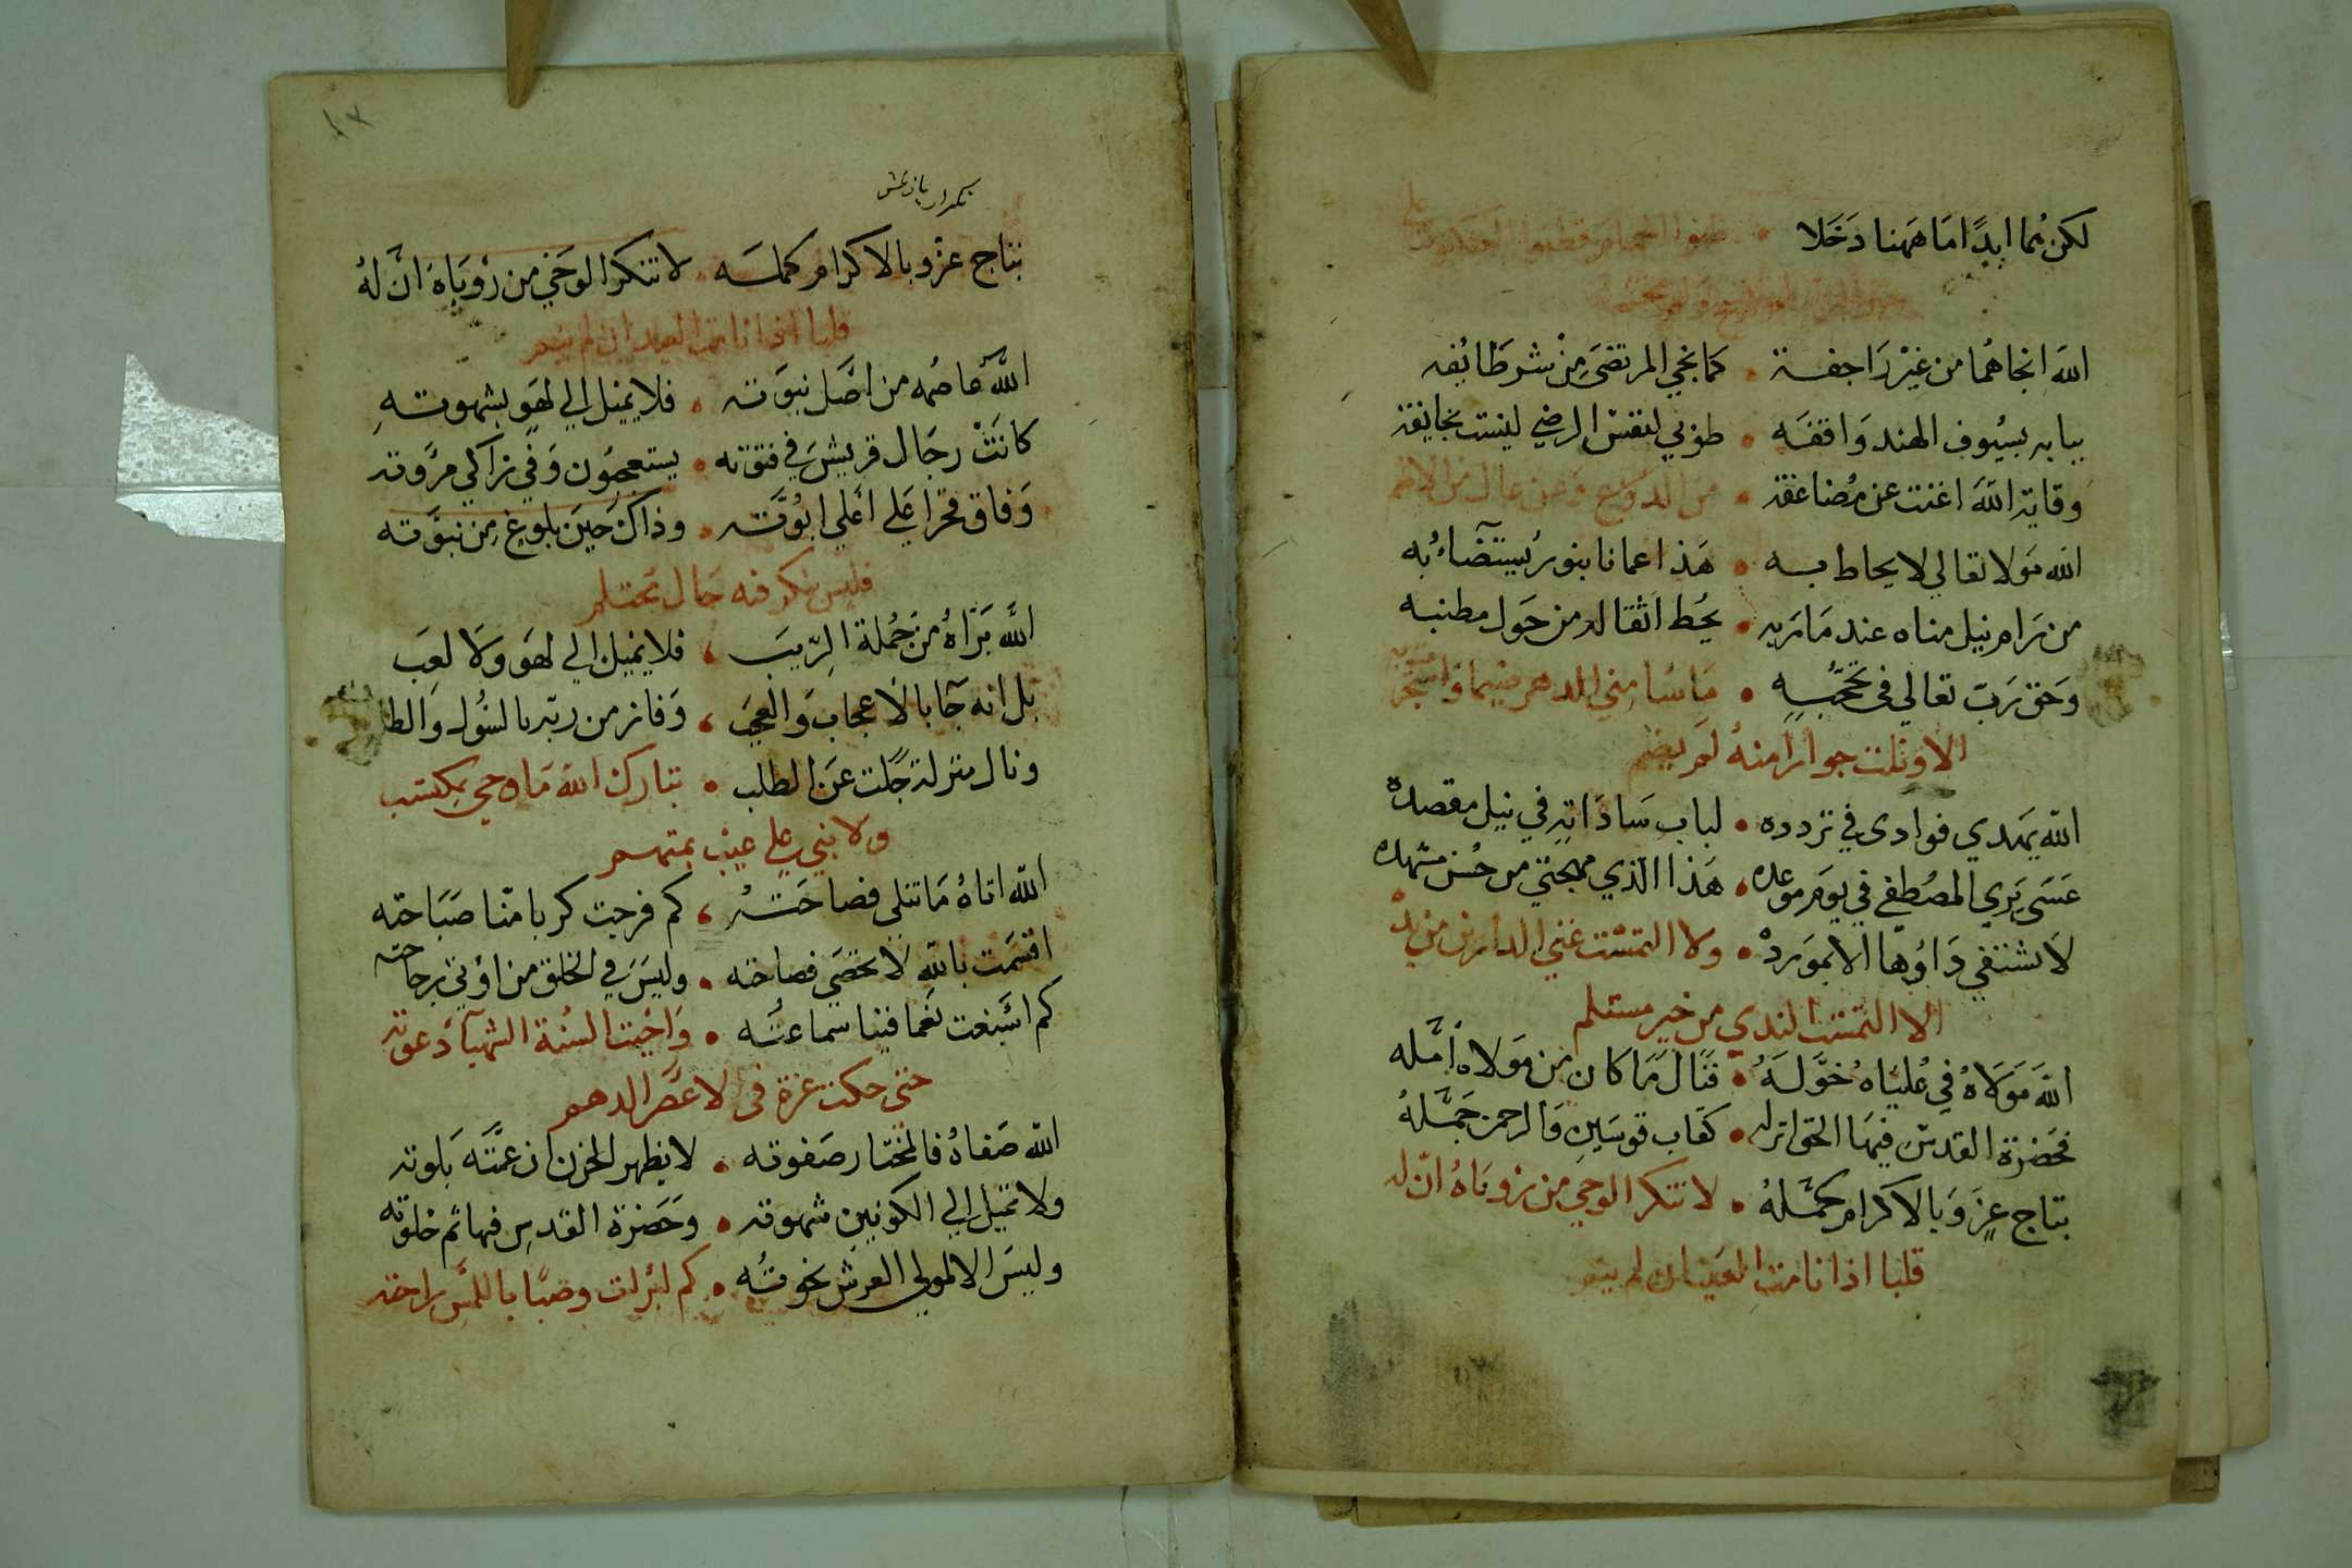 لكن هما ابدًا امَا هَمهنا دَخَلا • ظنوا الحمام وظنوا العنكبوت علي
اللهَ انجاهُما من غيْر رَاجفة • كما نجي المرتضَى مِنْ شر طَائِفه
ببابه بسيُوف الهند وَاقفَه • طوبي لنفسْ الرضي ليْست بخايفَة
وقاية اللهَ اغنت عن مُضاعفة • من الدروع وعن عال من الاطم
الله مَولا تعالي لا يحاط به • هَذا اعمانا بنور يُستَضَاءُ به
من رَام نيل مناه عند مَاربه • يحُط اثقاله من حَول مطنبه
وَحَق رَبّ تعالي في تحجّبُه • مَا سُامني الدهر ضيما وَاستجرت به
الا ونلت جوارا منهُ لمَ يضم
اللّه يَهدي فوادى في تردده • لباب سَادَاتِه في نيل مقصده
عَسَى يَرَي المصُطفي في يَومَ موعده • هَذا الذي مهجتي من حُسْن مشهده
لا تشتفي دَاوُها الا بموَردْ • ولا التمسْت غني الدارين من يدهْ
الا التمست الندي من خير مستلم
اللهَ مَوَلاهُ في عُليَاهُ خوَّلَهُ • فنَالَ مَا كان من مَولاه اُمَّله
فحَضرة القدسْ فيهَا الحق انزله • كقاب قوسَين وَالرحمن جَمَّلهُ
بتاج عِزَ وَبالاكرام كمَّلهُ • لا تنكر الوحي من رُويَاهُ انّ له
قلبا اذا نامت العَينان لم ينم
١٣
تكرار يازلمش
بتاج عزْ وبالاكرام كمله • لا تنكر الوحَي من رُوْيَاهَ انَّ لهُ
قلبا اذا نامت العينان لم ينم
اللّهَ عاصُمه من اصَّل نبوَته • فلا يَميْل الي لهَو بشهوته
كانَتْ رجَال قريش في فتوته • يستعجبُون وَفي زاكي مرُوته
وَفاق فخرا عَلي اعَلي ابُوَّته • وذاكَ حيَن بلوغ مِن نبوَّته
فليس ينكر فيه حَال محتلم
اللّه بَرَّاهُ من جُملة الرّيبَ • فلا يَميل الي لهَو وَلا لعَب
بل انه جَا بالاعجاب وَالعجَب • وَفاز من ربّه بالسُول وَالطلب
ونال منزلة جَلت عَن الطلب • تبارك اللهَ مَا وحي بمكتسب
ولا نبي علي غيْب بمتهم
اللّه اتاهُ مَا تتلي فصاحَتهُ • كم فرجت كربا منّا صَبَاحته
اقسَمَت باللّهِ لا تحصَي فصاحته • وليسَ في الخلق من اوُتي رجاحته
كم اسَبغت نعَما فينا سماعتُه • وَاحيَت السُنة الشهبَآ دَعوته
حتى حكت غرة في الاعصُر الدهم
اللّه صَفاهُ فالمختار صَفوته • لا يظهر الحزن ان عمَّتَه بَلوته
ولا تميْل الي الكونين شهوته • وحَضرة القدسِ فيها ثم خلوته
وليسَ الا لمولي العرش نخوتُه • كم ابرات وصبًا باللمسَ راحته